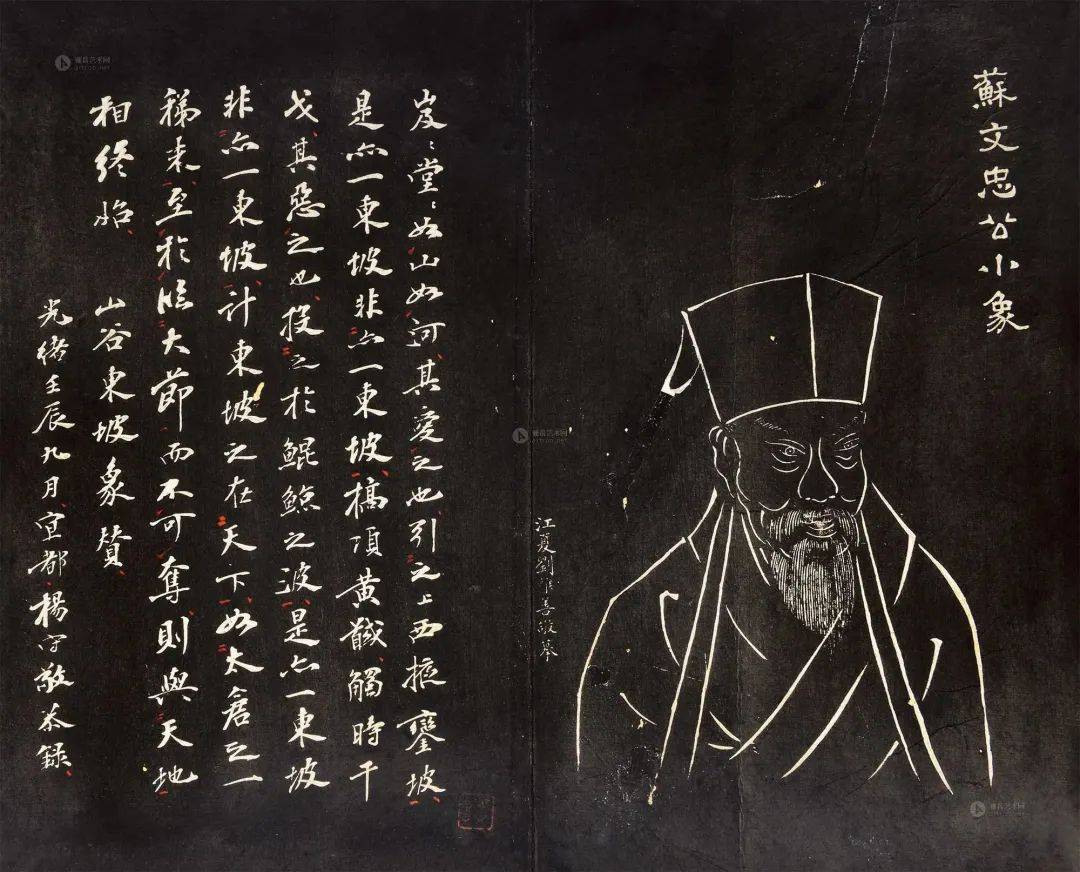 蘇文忠公小象
江夏劉維善敬摹
岌〻堂〻如山如河其愛之也引之上西掖鑾坡
是亦一東坡非亦一東坡槁項黃馘觸時干
戈其惡之也投之於鯤鯨之波是亦一東坡
非亦一東坡計東坡之在天下如太倉之一
稊米至於臨大節而不可奪則與天地
相終始 山谷東坡象贊
光緒壬辰九月宜都楊守敬恭錄
雅昌艺术网
artron.net
雅昌艺术网
artron.net
雅昌艺术网
artron.net